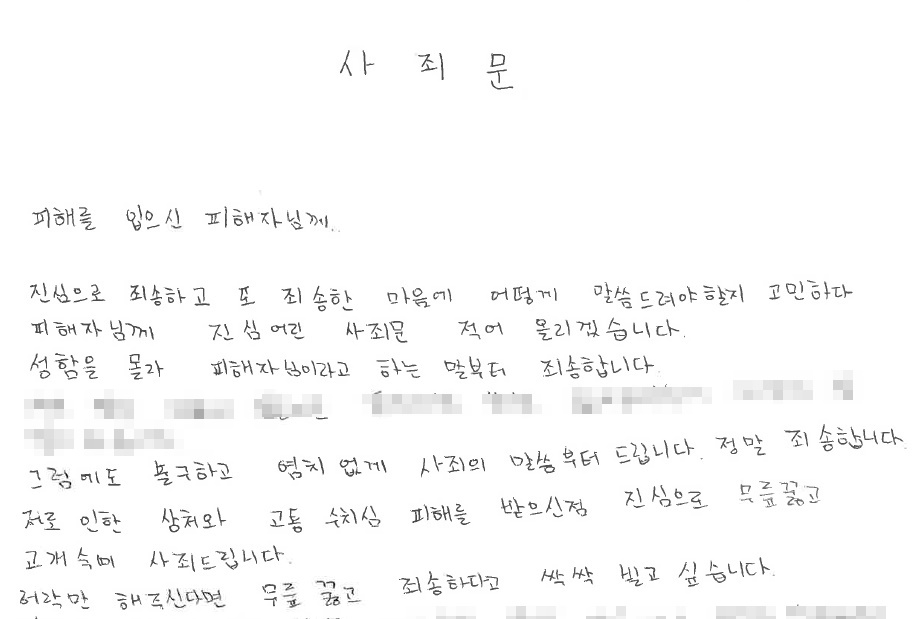 사 죄 문
피해를 입으신 피해자님께..
진심으로 죄송하고 또 죄송한 마음에 어떻게 말씀드려야할지 고민하다
피해자님께 진심어린 사죄문 적어 올리겠습니다.
성함을 몰라 피해자님이라고 하는 말부터 죄송합니다.
그럼에도 불구하고 염치없게 사죄의 말씀부터 드립니다. 정말 죄송합니다.
저로 인한 상처와 고통 수치심 피해를 받으신점 진심으로 무릎꿇고
고개숙여 사죄드립니다.
허락만 해주신다면 무릎 꿇고 죄송하다고 싹싹 빌고 싶습니다.